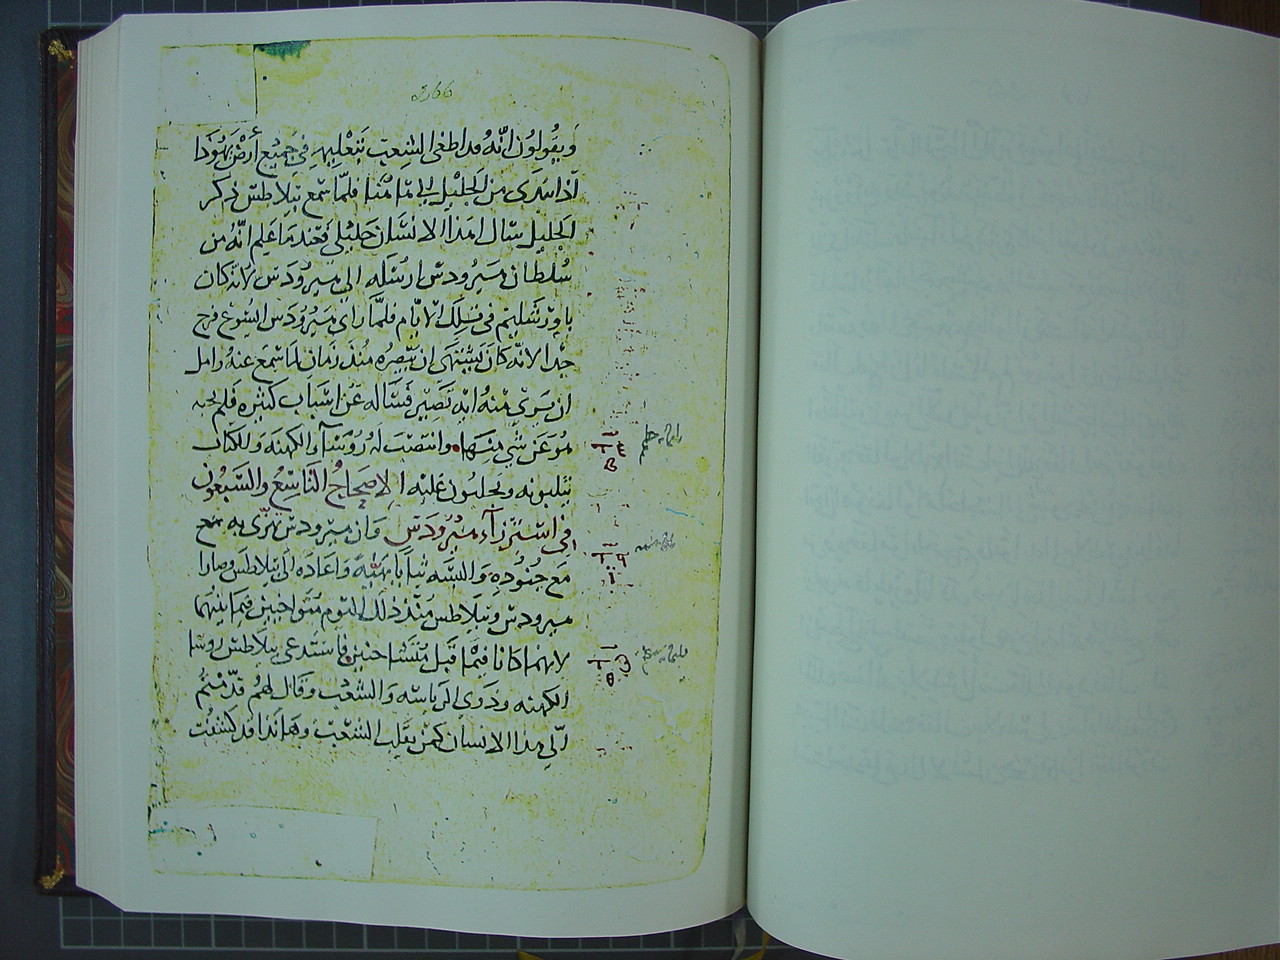 266
ويقولون انه قد اطغى الشعب بتعليمه في جميع أرض يهوذا
اذ ابتدى من الجليل الى هاهنا فلما سمع بيلاطس ذكر
الجليل سال اهذا الانسان جليلي فعندما علم انه من
سلطان هيرودس ارسله الى هيرودس لانه كان
باورشليم في تلك الايام فلما راى هيرودس اليسوع فرح
جدا لانه كان يشتهى ان يبصره منذ زمان لما سمع عنه وامل
ان يرى منه اية تصير فساله عن اسباب كثيره فلم يجبه
هو عن شي منها وانتصب له روسآ الكهنه والكتاب
يثلبونه ويجلبون عليه الاصحاح التاسع والسبعون
في استهزآء هيرودس وان هيرودس تهزى به
مع جنوده والبسه ثيابا واعاده الى بيلاطس وصارا
هيرودس وبيلاطس منذ ذلك اليوم متواخيين فيما بينهما
لانهما كانا فيما قبل فاستدعى بيلاطس روسا
الكهنه وذوي الرياسه والشعب وقال لهم قدمتم
الي هذا الانسان كمن يقلب الشعب وها نذا قد كشفت